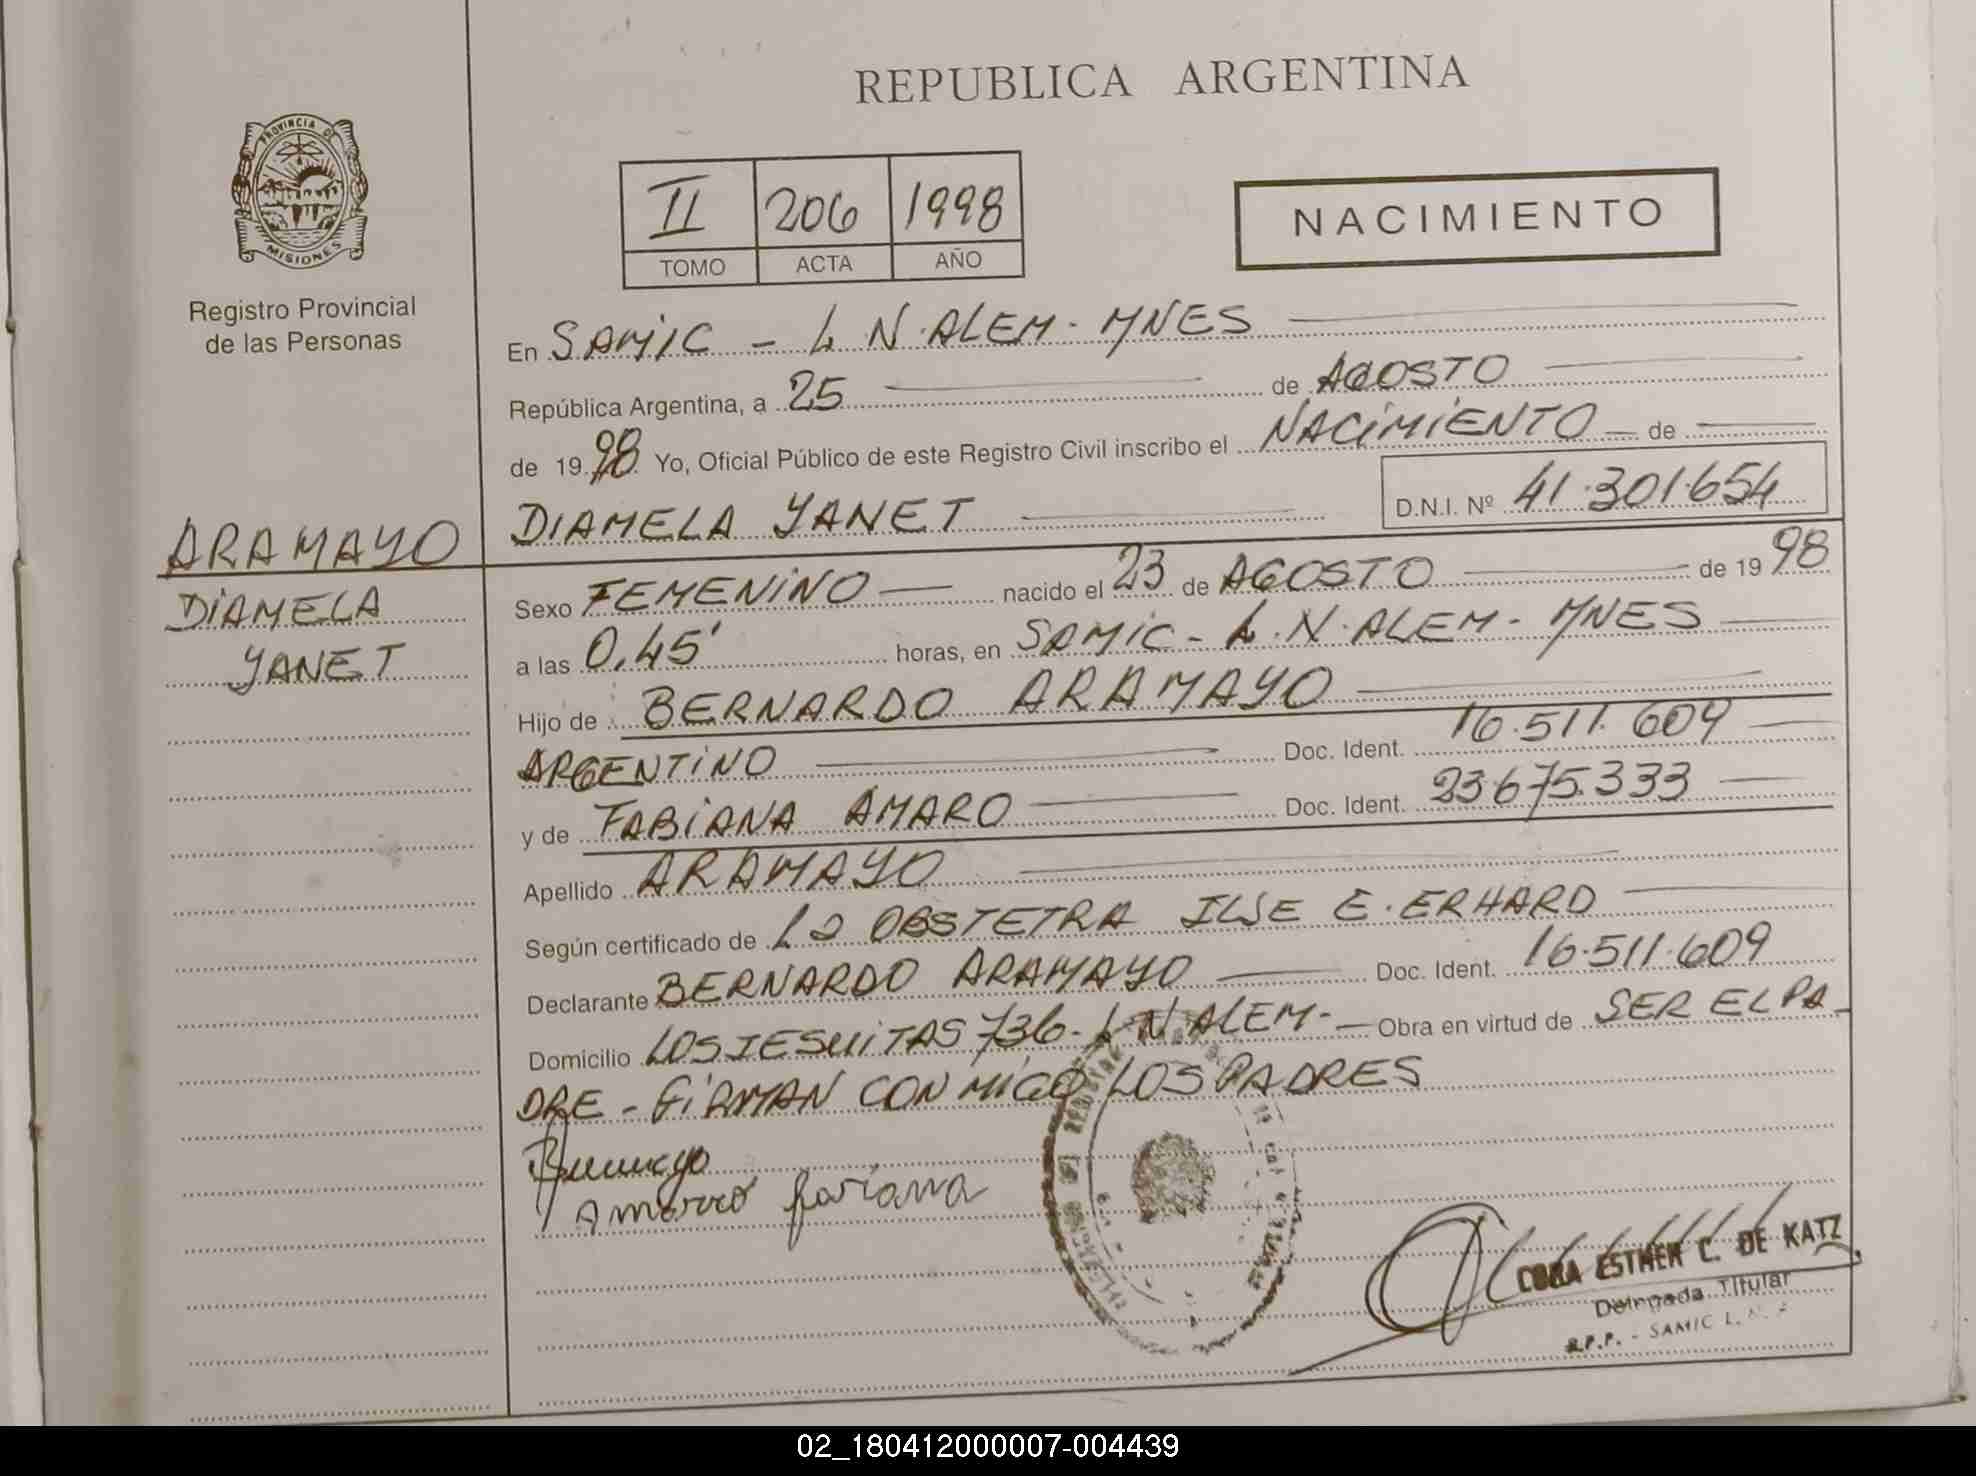 REPUBLICA ARGENTINA
PROVINCIA DE
MISIONES
Registro Provincial
de las Personas
II 206 1998
TOMO ACTA AÑO
NACIMIENTO
En SAMIC - L. N. ALEM - MNES
República Argentina, a 25 de AGOSTO
de 1998 Yo, Oficial Público de este Registro Civil inscribo el NACIMIENTO de
DIAMELA YANET D.N.I. Nº 41.301.654
ARAMAYO
DIAMELA
YANET
Sexo FEMENINO nacido el 23 de AGOSTO de 1998
a las 0,45' horas, en SAMIC - L. N. ALEM - MNES
Hijo de BERNARDO ARAMAYO
ARGENTINO Doc. Ident. 16.511.609
y de FABIANA AMARO Doc. Ident. 23.675.333
Apellido ARAMAYO
Según certificado de La OBSTETRA ILSE E. ERHARD
Declarante BERNARDO ARAMAYO Doc. Ident. 16.511.609
Domicilio LOS JESUITAS 736 - L N ALEM - Obra en virtud de SER EL PA-
DRE - FIRMAN CONMIGO LOS PADRES
ESTHER C. DE KATZ
Delegada Titular
R.P.P. - SAMIC L.
02_180412000007-004439